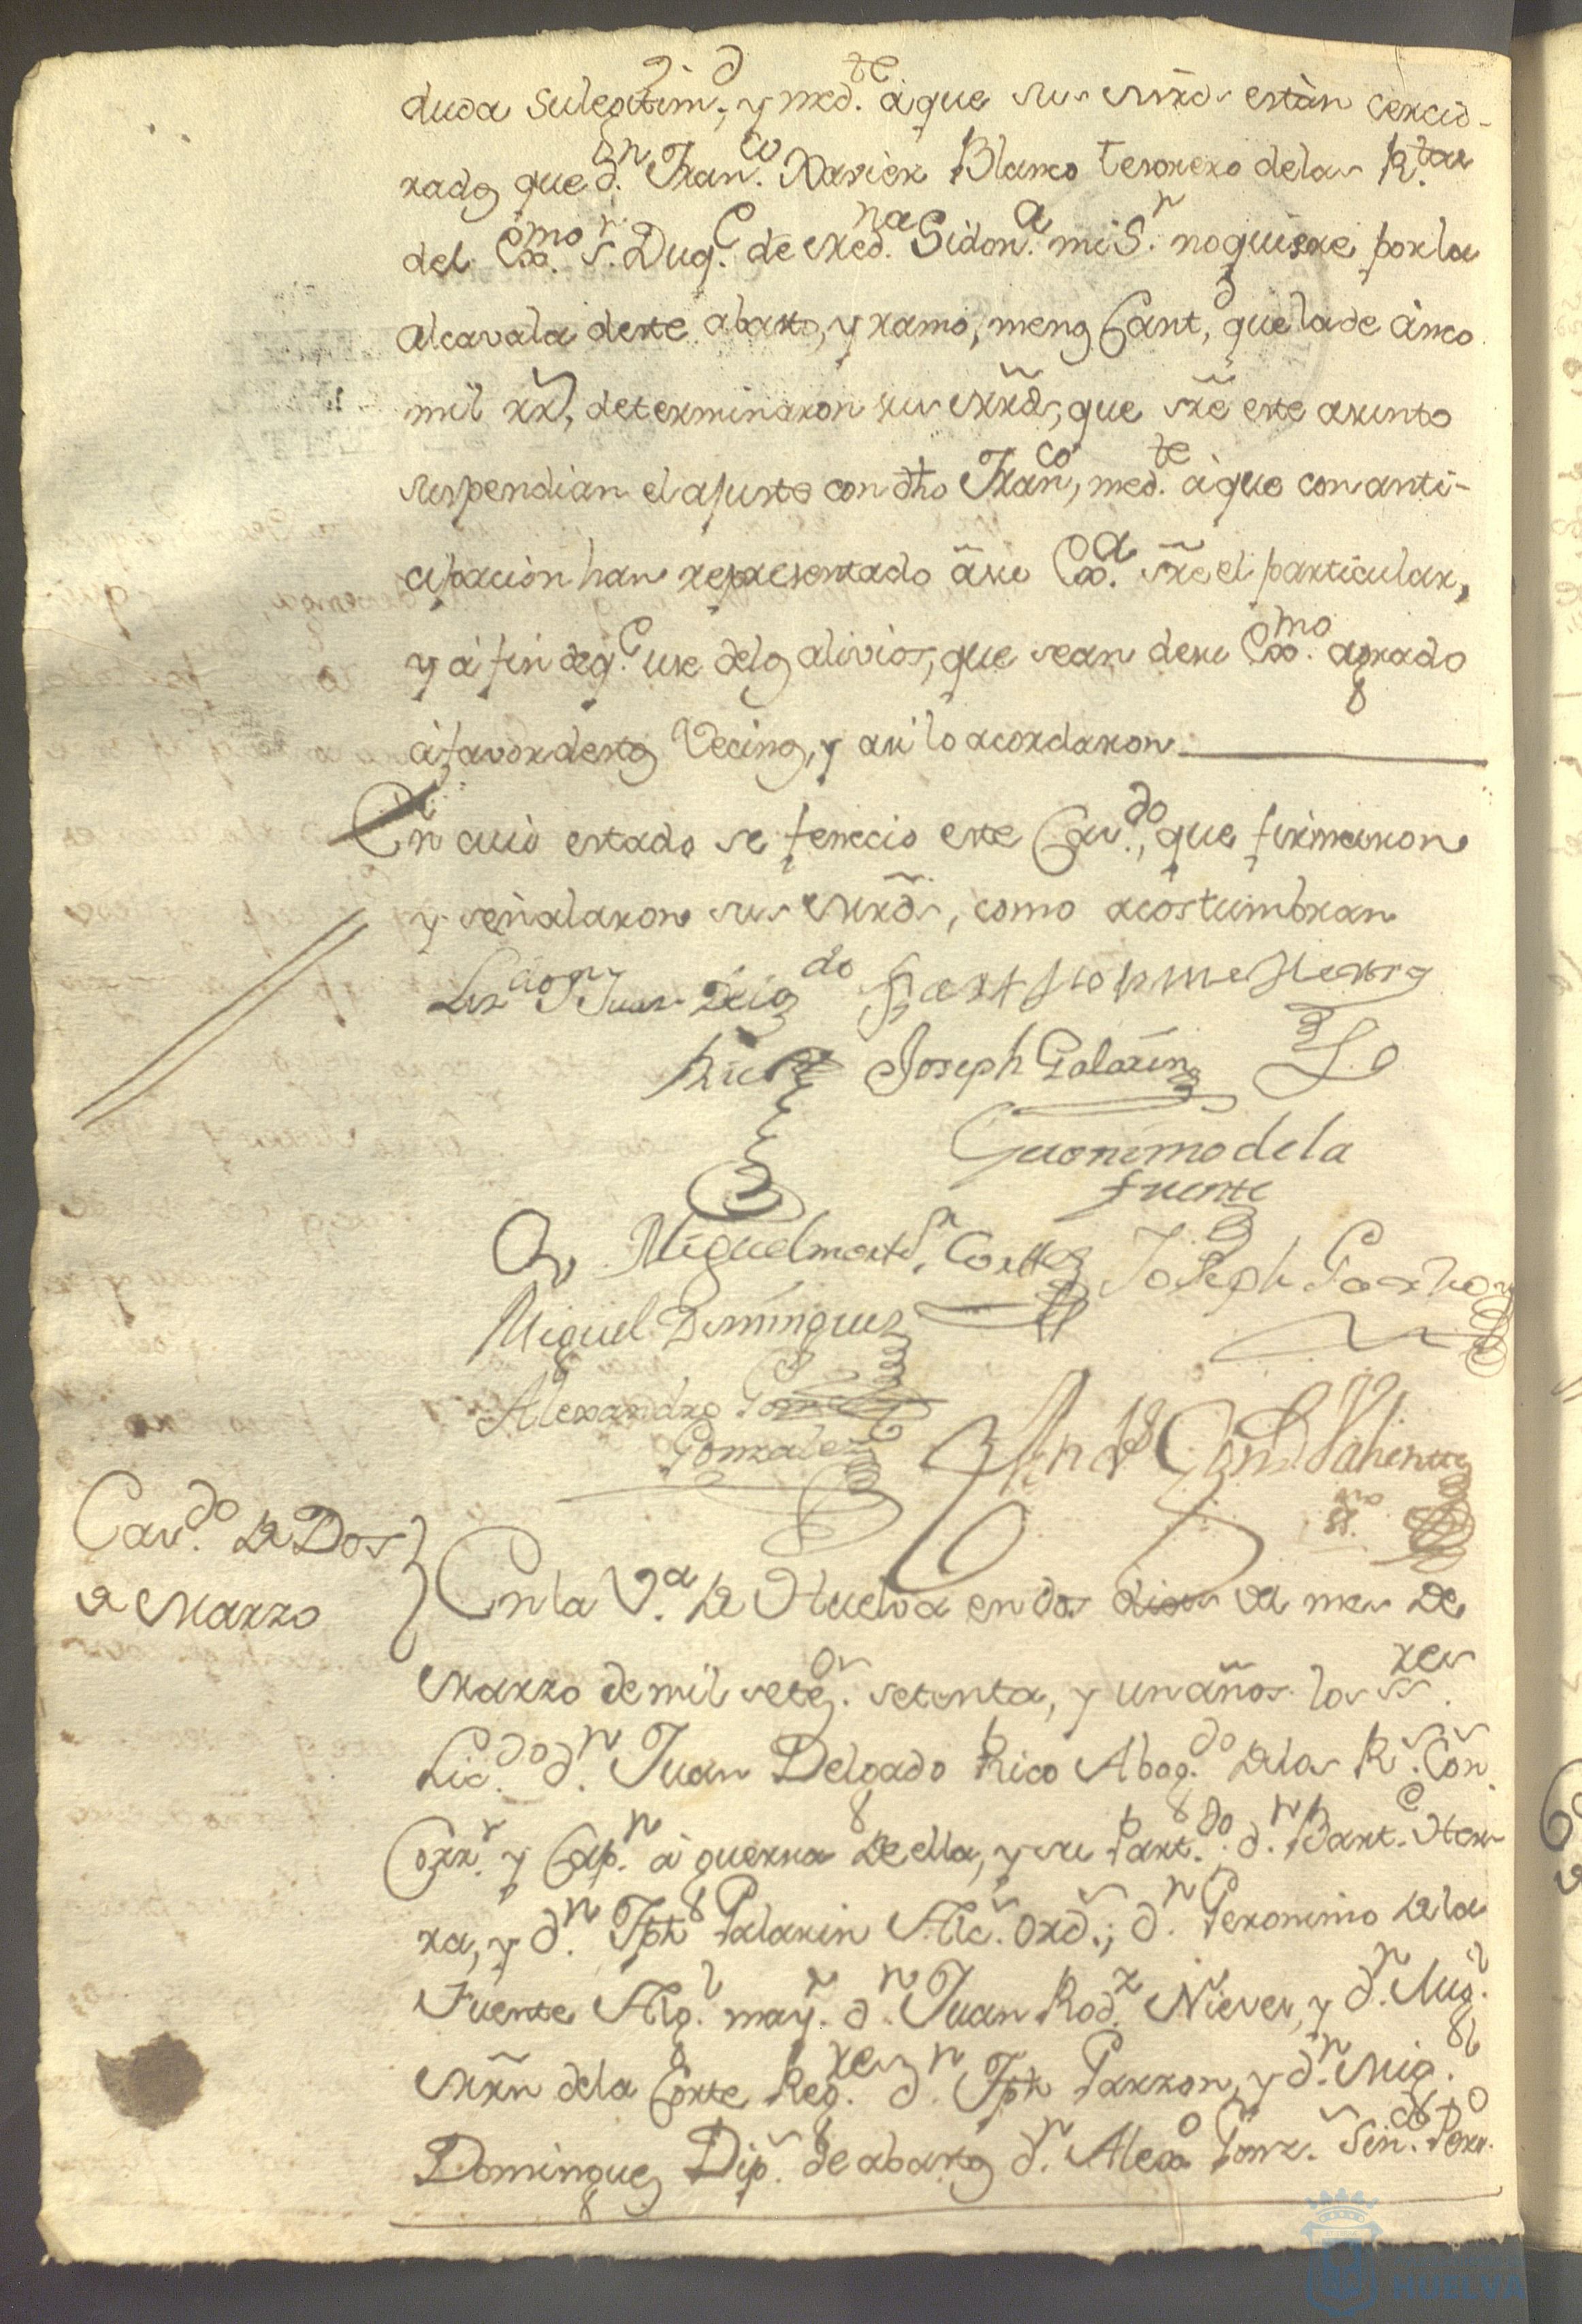 duda su legitim.d, y med.te à que sus mrds. están cercio-
rados que d.n Fran.co Xavier Blanco tesorero de las R.tas
del Exmo. s.r Duq.e de Med.na Sidon.a mi S.r no quiere por la
Alcavala deste abasto, y ramo, menos Cant.d, que la de cinco
mil rr.s, determinaron sus mrds, que sre este asunto
suspendian el ajuste con dho Fran.co, med.te à que con anti-
cipacion han representado à su Exa. sre el particular,
y à fin de q.e use de los alivios, que sean de su Exmo. agrado
à favor destos Vecinos, y asi lo acordaron
En cuio estado se fenecio este Cav.do, que firmaron
y señalaron sus mrds, como acostumbran
Liz.do Dn Juan Delg.do Barttholome Herera
Rico Joseph Galarin
Geronimo de la
fuente
Miguel mart.n Cortes Joseph Garzon
Miguel Dominguez
Alexandro Gomez
Gonzalez
ss.no
Cav.do de Dos
de Marzo
En la V.a de Huelva en dos dias del mes de
Marzo de mil setez.os setenta, y un años los ss.res
Lic.do d.n Juan Delgado Rico Abog.do de las R.s Con.s
Corr.r y Cap.n à guerra de ella, y su Part.do d.n Bart.e Her-
ra, y d.n Jph Galarin Alc.s Ord.s; d.n Geronimo de la
Fuente Alg.l may.r d.n Juan Rod.z Nieves, y d.n Mig.l
Mrn de la Corte Reg.res d.n Jph Garzon, y d.n Mig.l
Dominguez Dip.s de abastos d.n Alexo Gonz. Sin.do Pers.o
HUELVA